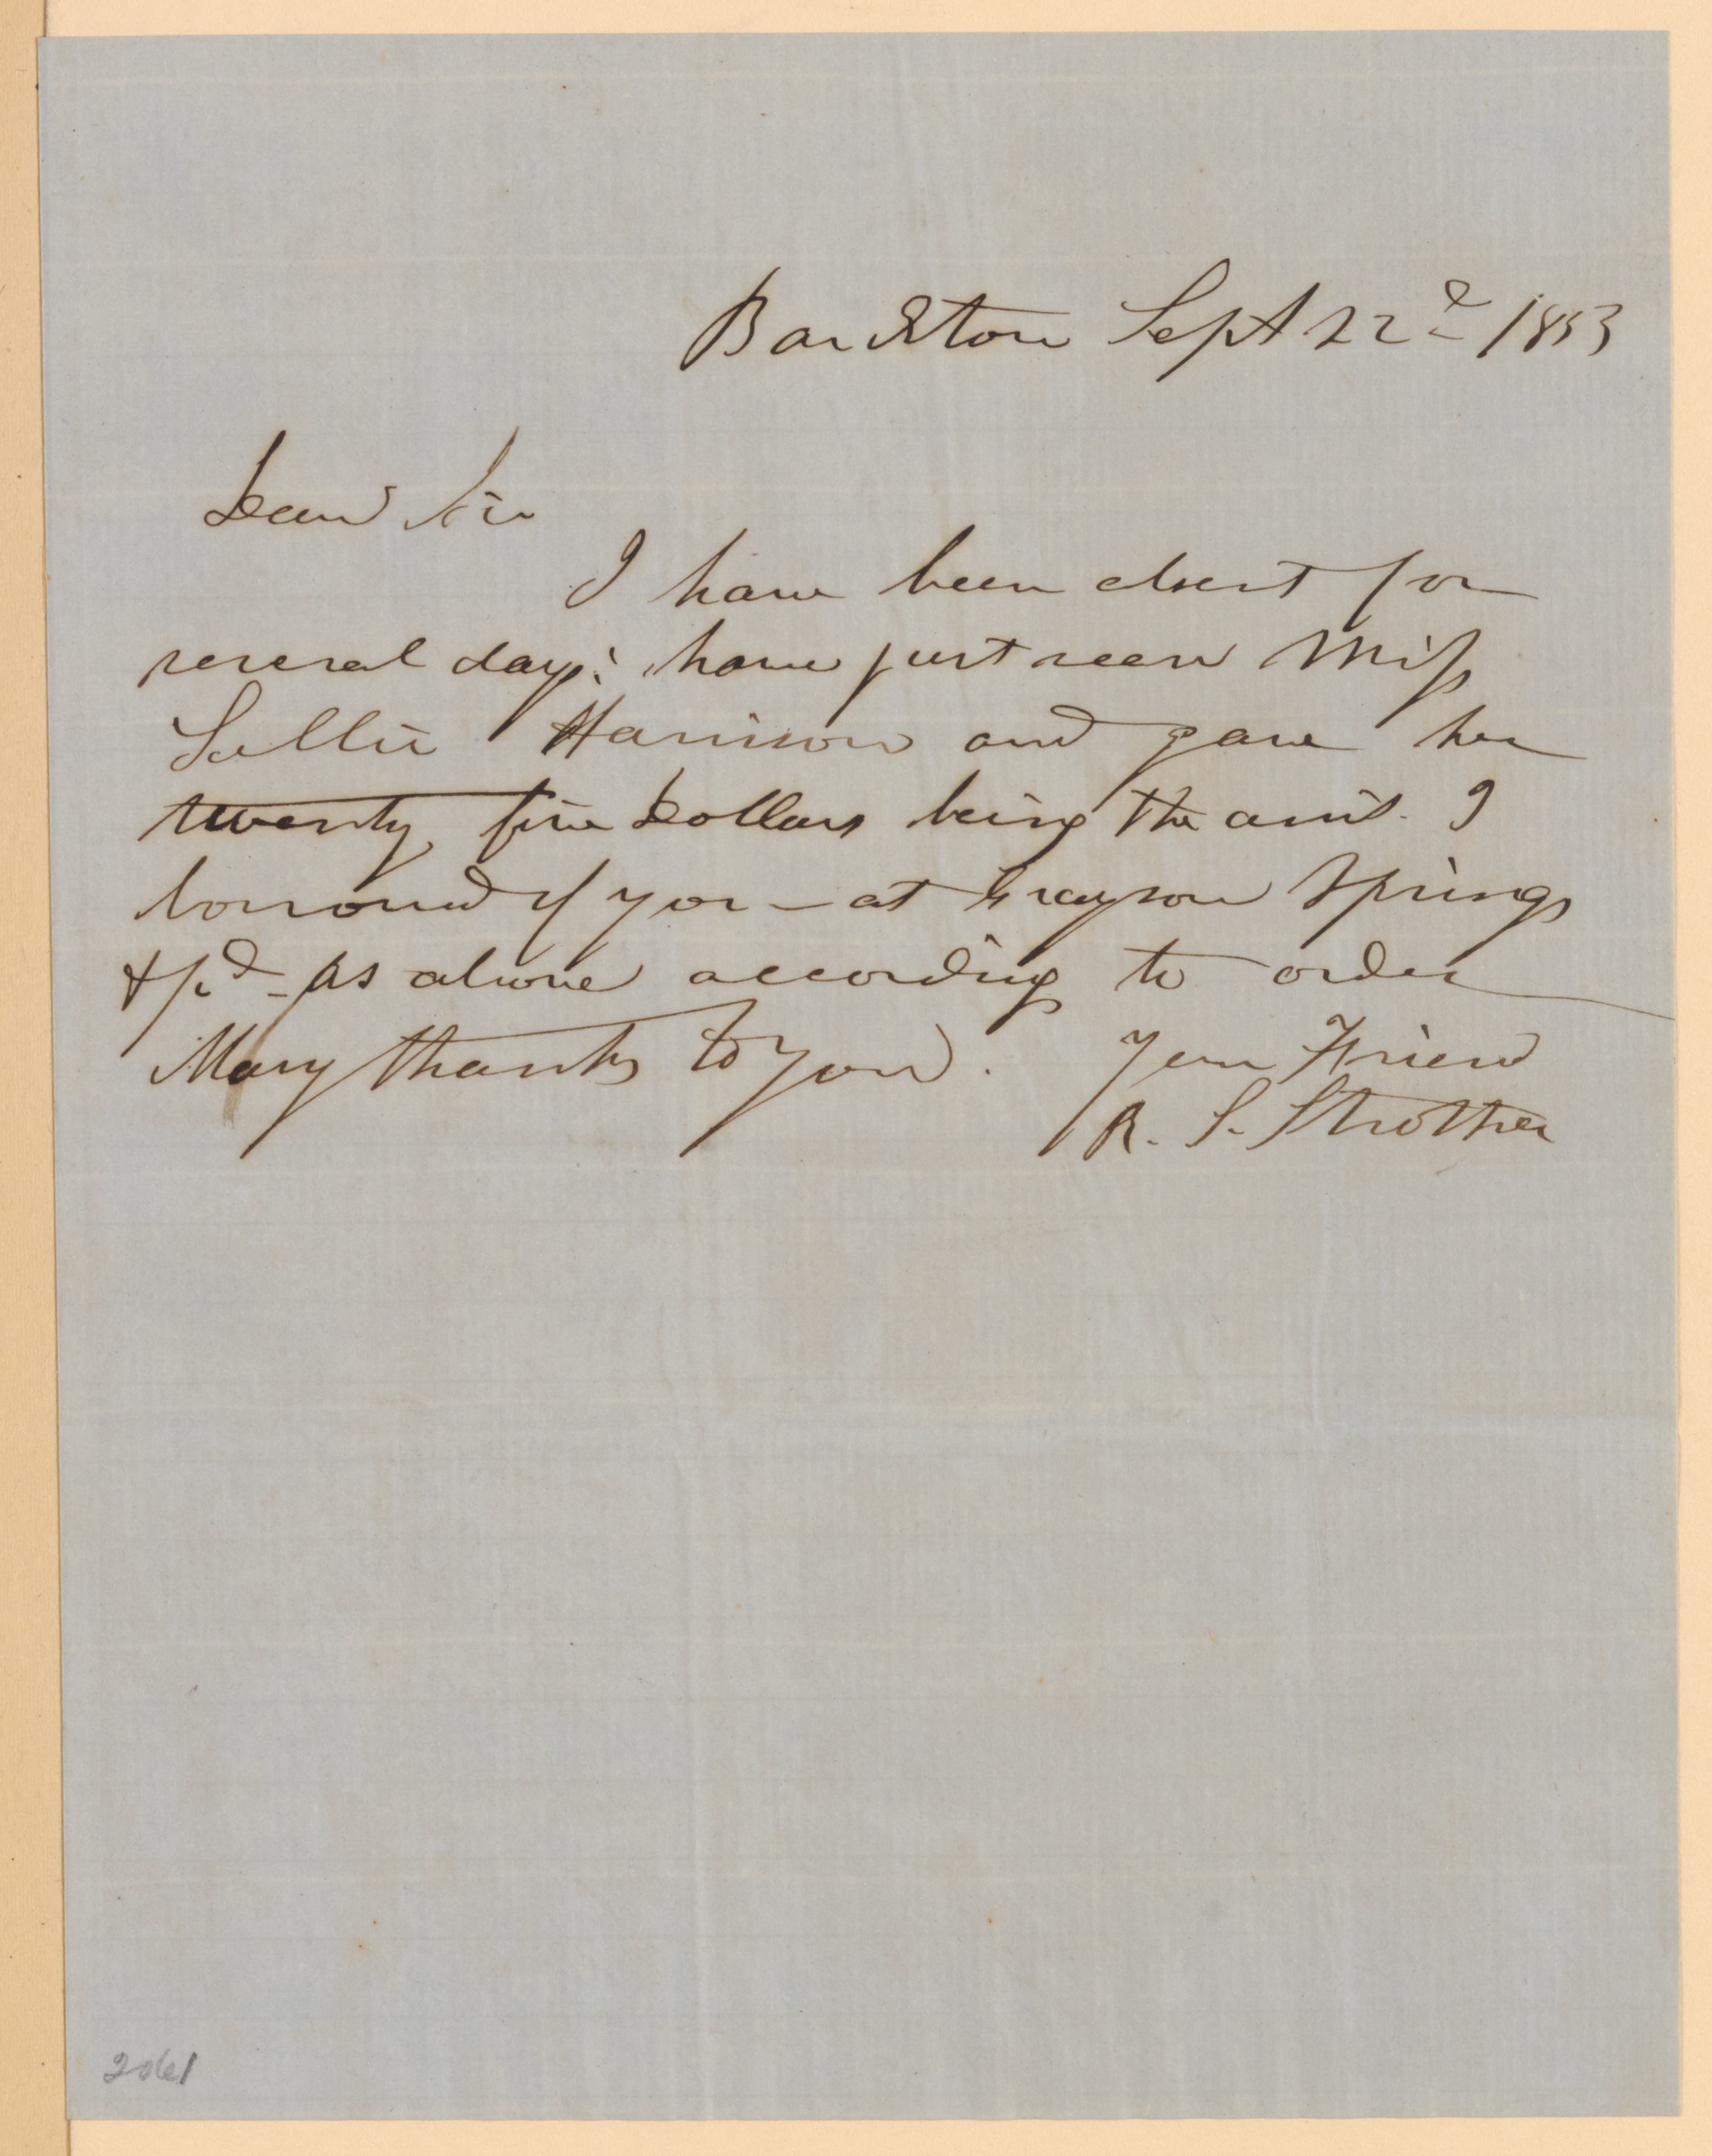 Bardstown Sept 22d 1853
Dear Sir
I have been absent for
several days: have just seen Miss
Sallie Harrison and gave her
twenty five Dollars being the amt. I
borrowed of you - at Grayson Springs
& pd - as above according to order
Many thanks to you. Your Friend
R. S. Strother
2061